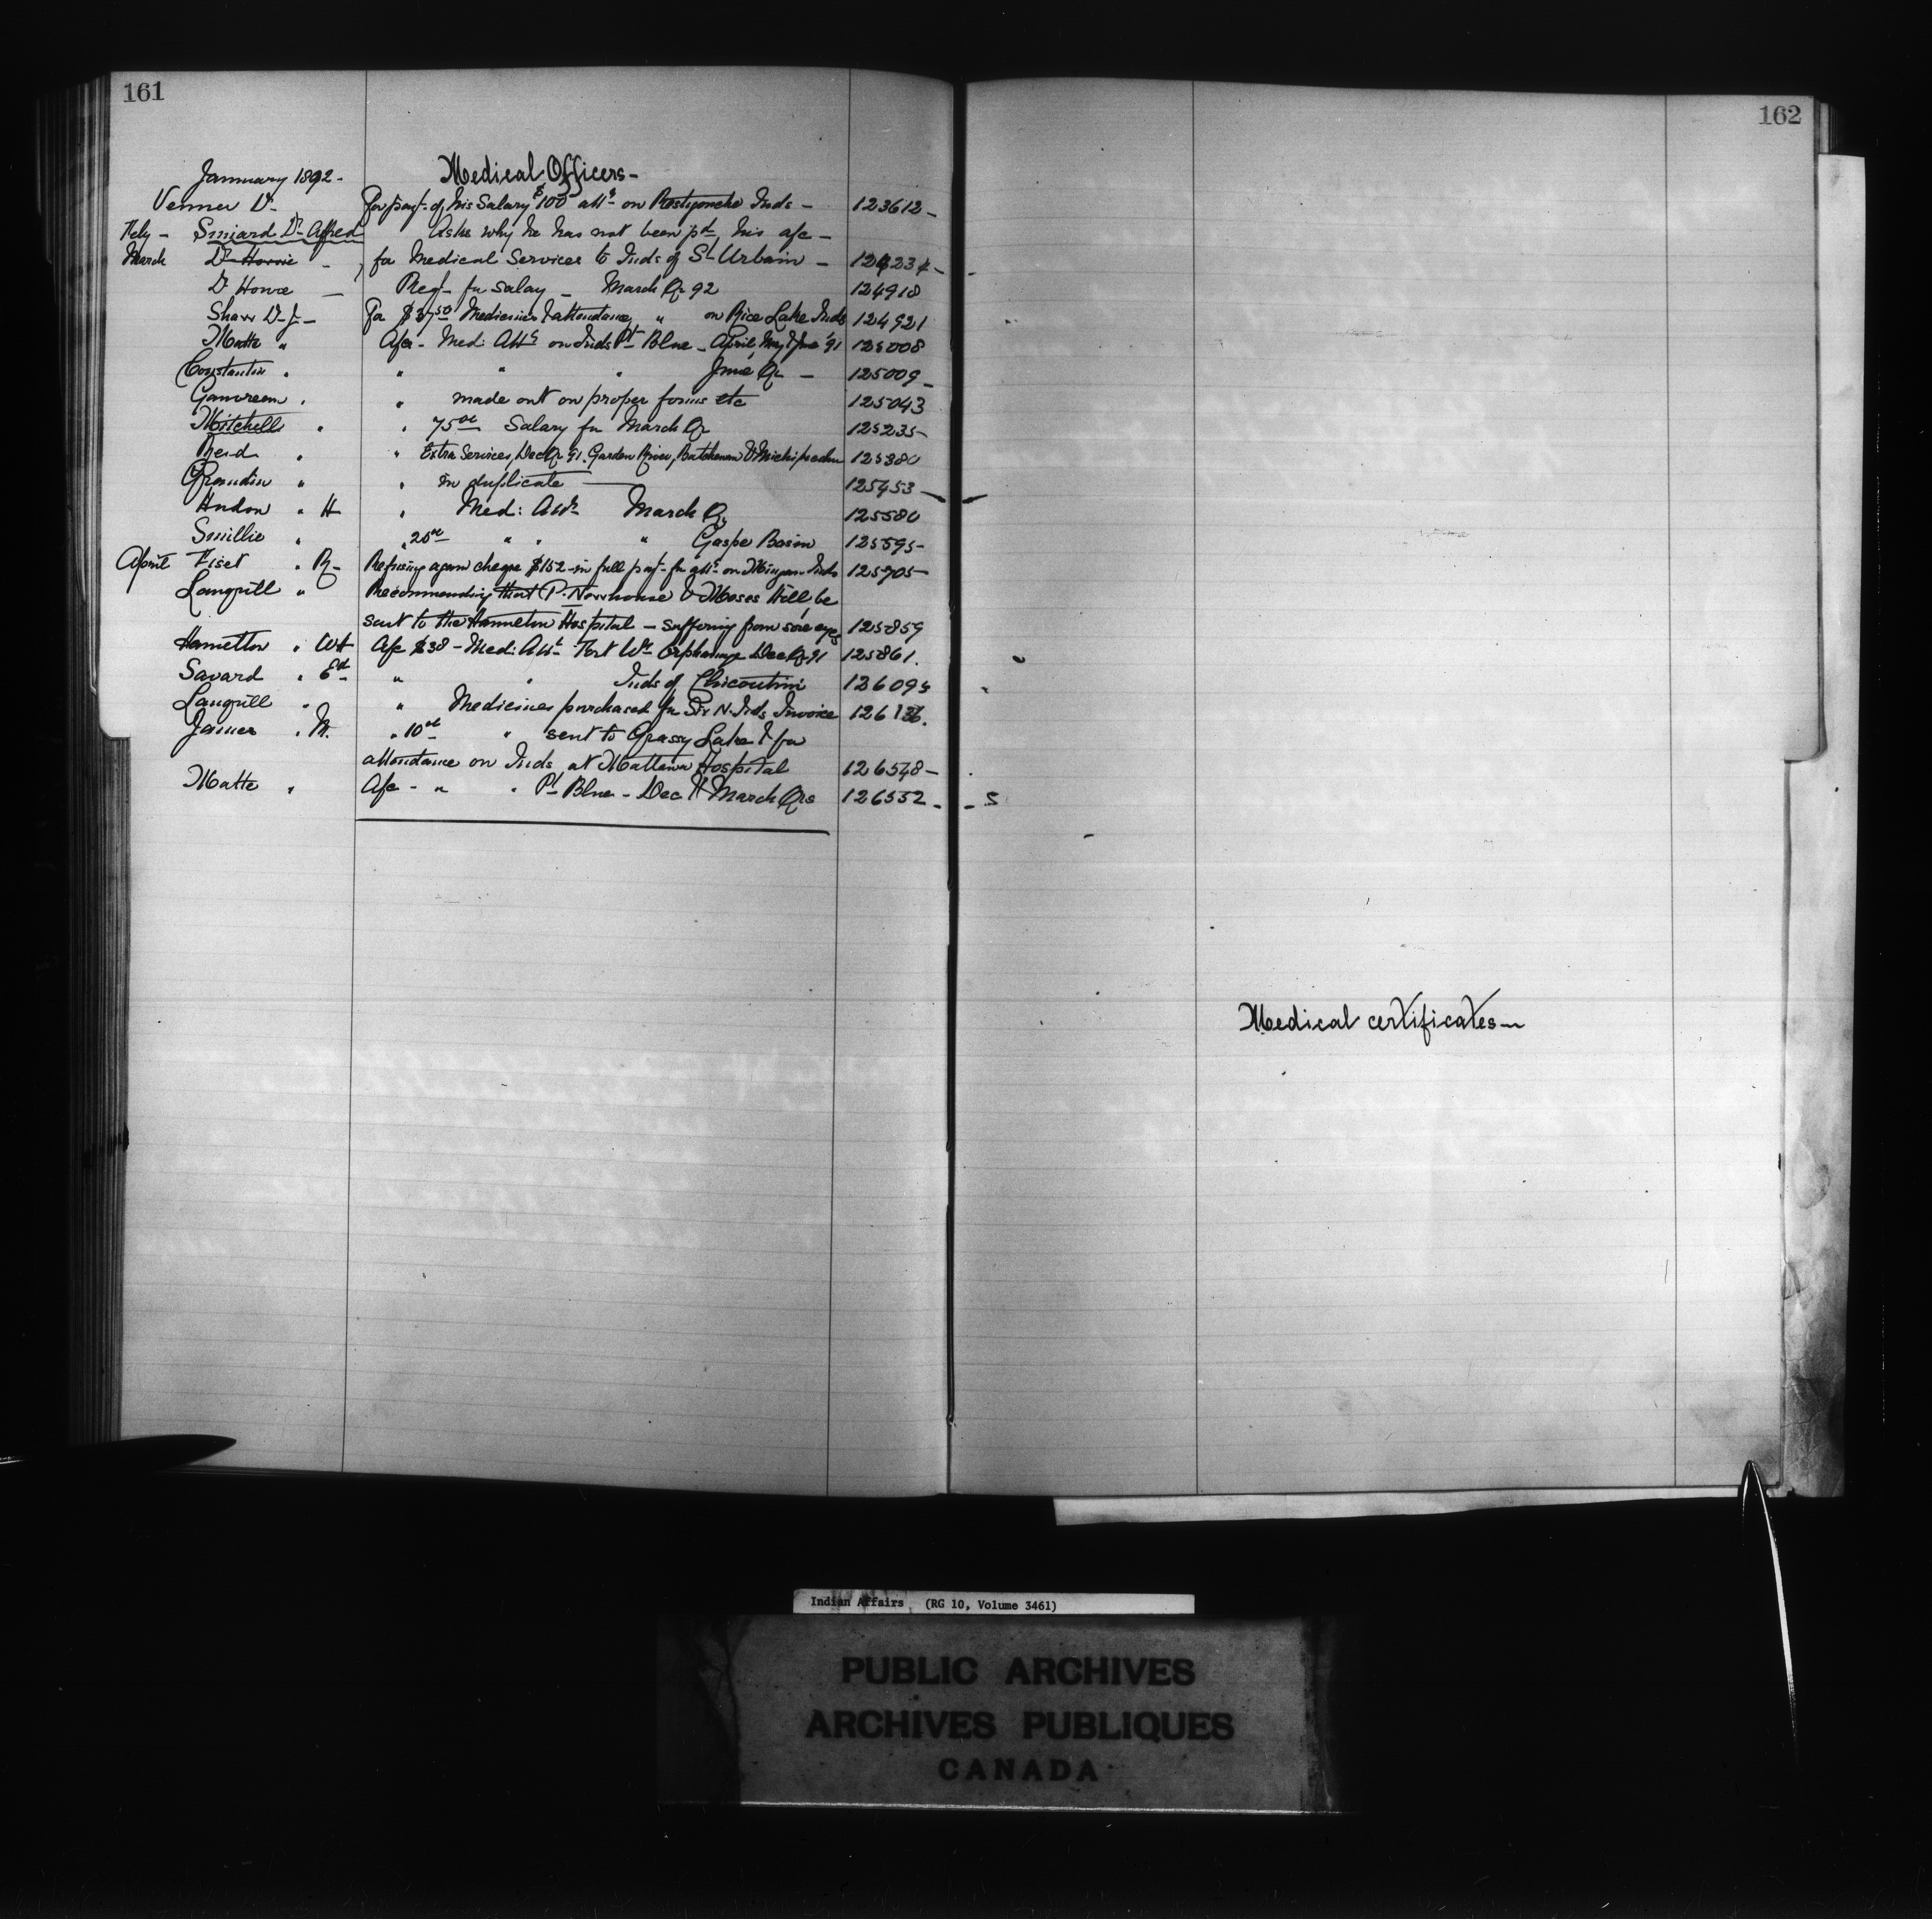 161
162
January 1892 - Medical Officers -
Venner Dr. For payt. of his Salary $100 attg. on Restigouche Inds - 123612 -
Feby - Simard Dr. Alfred Asks why he has not been pd. his a/c -
March Dr. Howie - for Medical Services to Inds of St Urbain - 124234 -
Dr Howe - Reqt. for salary - March Qr 92 124918
Shaw Dr. J - For $37.50 Medicines & attendance " on Rice Lake Inds 124921
Matte " A/cs - Med: Attg. on Inds Pt. Blue - April, May & June '91 125008
Constantin " " " " June Qr - 125009 -
Gauvreau " " made out on proper forms etc 125043
Mitchell " " 75.00 Salary for March Qr 125235
Reid " " Extra Services, Dec Qr 91. Garden River, Batchewan & Michipicoten 125380
Grandin " " in duplicate 125453
Hudon " H " Med: Attg. March Qr 125580
Smillie " " 20.00 " " " Gaspe Basin 125595
April Fiset " R - Refusing again cheque $152 - in full payt. for attg. on Mingan Inds 125705
Langrill " Recommending that P. Newhouse & Moses Hill, be
sent to the Hamilton Hospital - suffering from sore eyes 125859
Hamilton " WH A/c $38 - Med: Attg. Fort Wm Orphanage Dec Qr 91 125861.
Savard " Ed. " " Inds of Chicoutimi 126095
Langrill " " Medicines purchased for Six N. Inds Invoice 126136.
James " M. " 10.00 " sent to Grassy Lake & for
attendance on Inds at Mattawa Hospital 126548 -
Matte " A/c - " " Pt Blue - Dec & March Qrs 126552 - - S
Medical certificates -
Indian Affairs (RG 10, Volume 3461)
PUBLIC ARCHIVES
ARCHIVES PUBLIQUES
CANADA